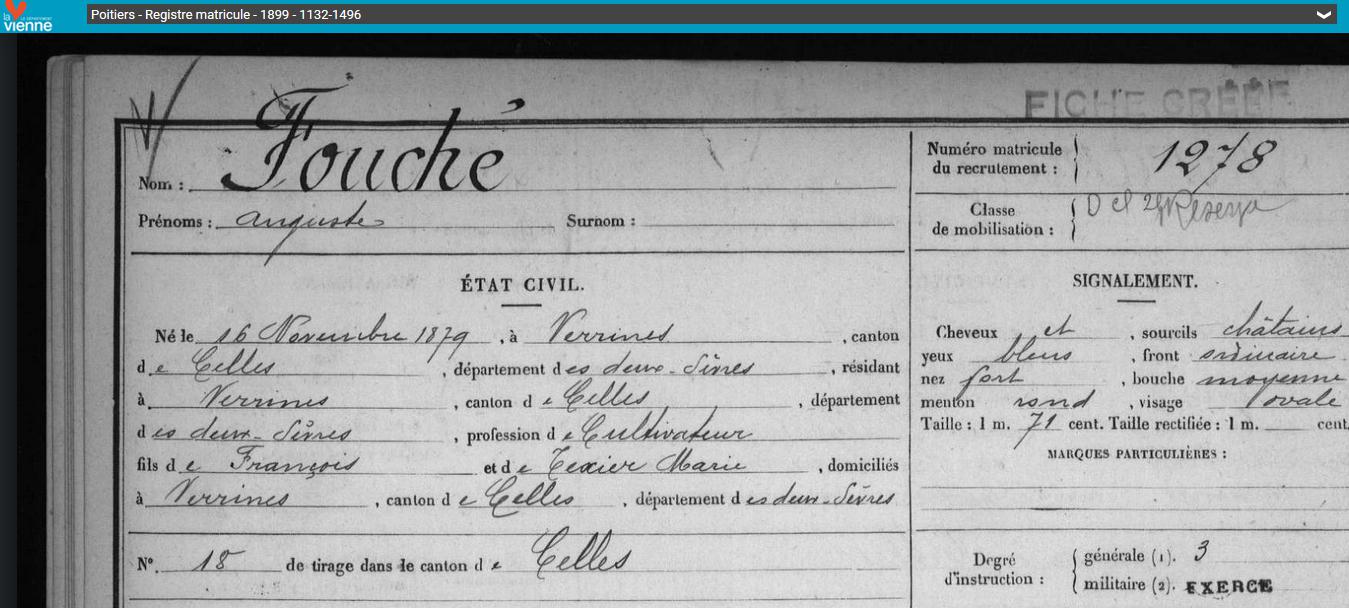 la vienne
Poitiers - Registre matricule - 1899 - 1132-1496
FICHE CRÉÉE
Nom : Fouché
Prénoms : Auguste Surnom :
Numéro matricule
du recrutement : 1278
Classe
de mobilisation : D et Réserve
ÉTAT CIVIL.
Né le 16 Novembre 1879, à Verrines, canton
de Celles, département des deux-Sèvres, résidant
à Verrines, canton de Celles, département
des deux-Sèvres, profession de Cultivateur
fils de François et de Texier Marie, domiciliés
à Verrines, canton de Celles, département des deux-Sèvres
N° 18 de tirage dans le canton de Celles
SIGNALEMENT.
Cheveux et, sourcils châtains
yeux bleus, front ordinaire
nez fort, bouche moyenne
menton rond, visage ovale
Taille : 1 m. 71 cent. Taille rectifiée : 1 m. cent.
MARQUES PARTICULIÈRES :
Degré
d'instruction :
générale (1). 3
militaire (2). EXERCE